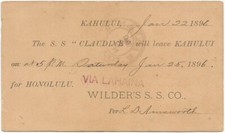 KAHULUI, Jan 22 1896
The S. S "CLAUDINE" will leave KAHULUI
on at 5 P.M. Saturday Jan 25, 1896
for HONOLULU.
VIA LAHAINA
WILDER'S S. S. CO.,
Per